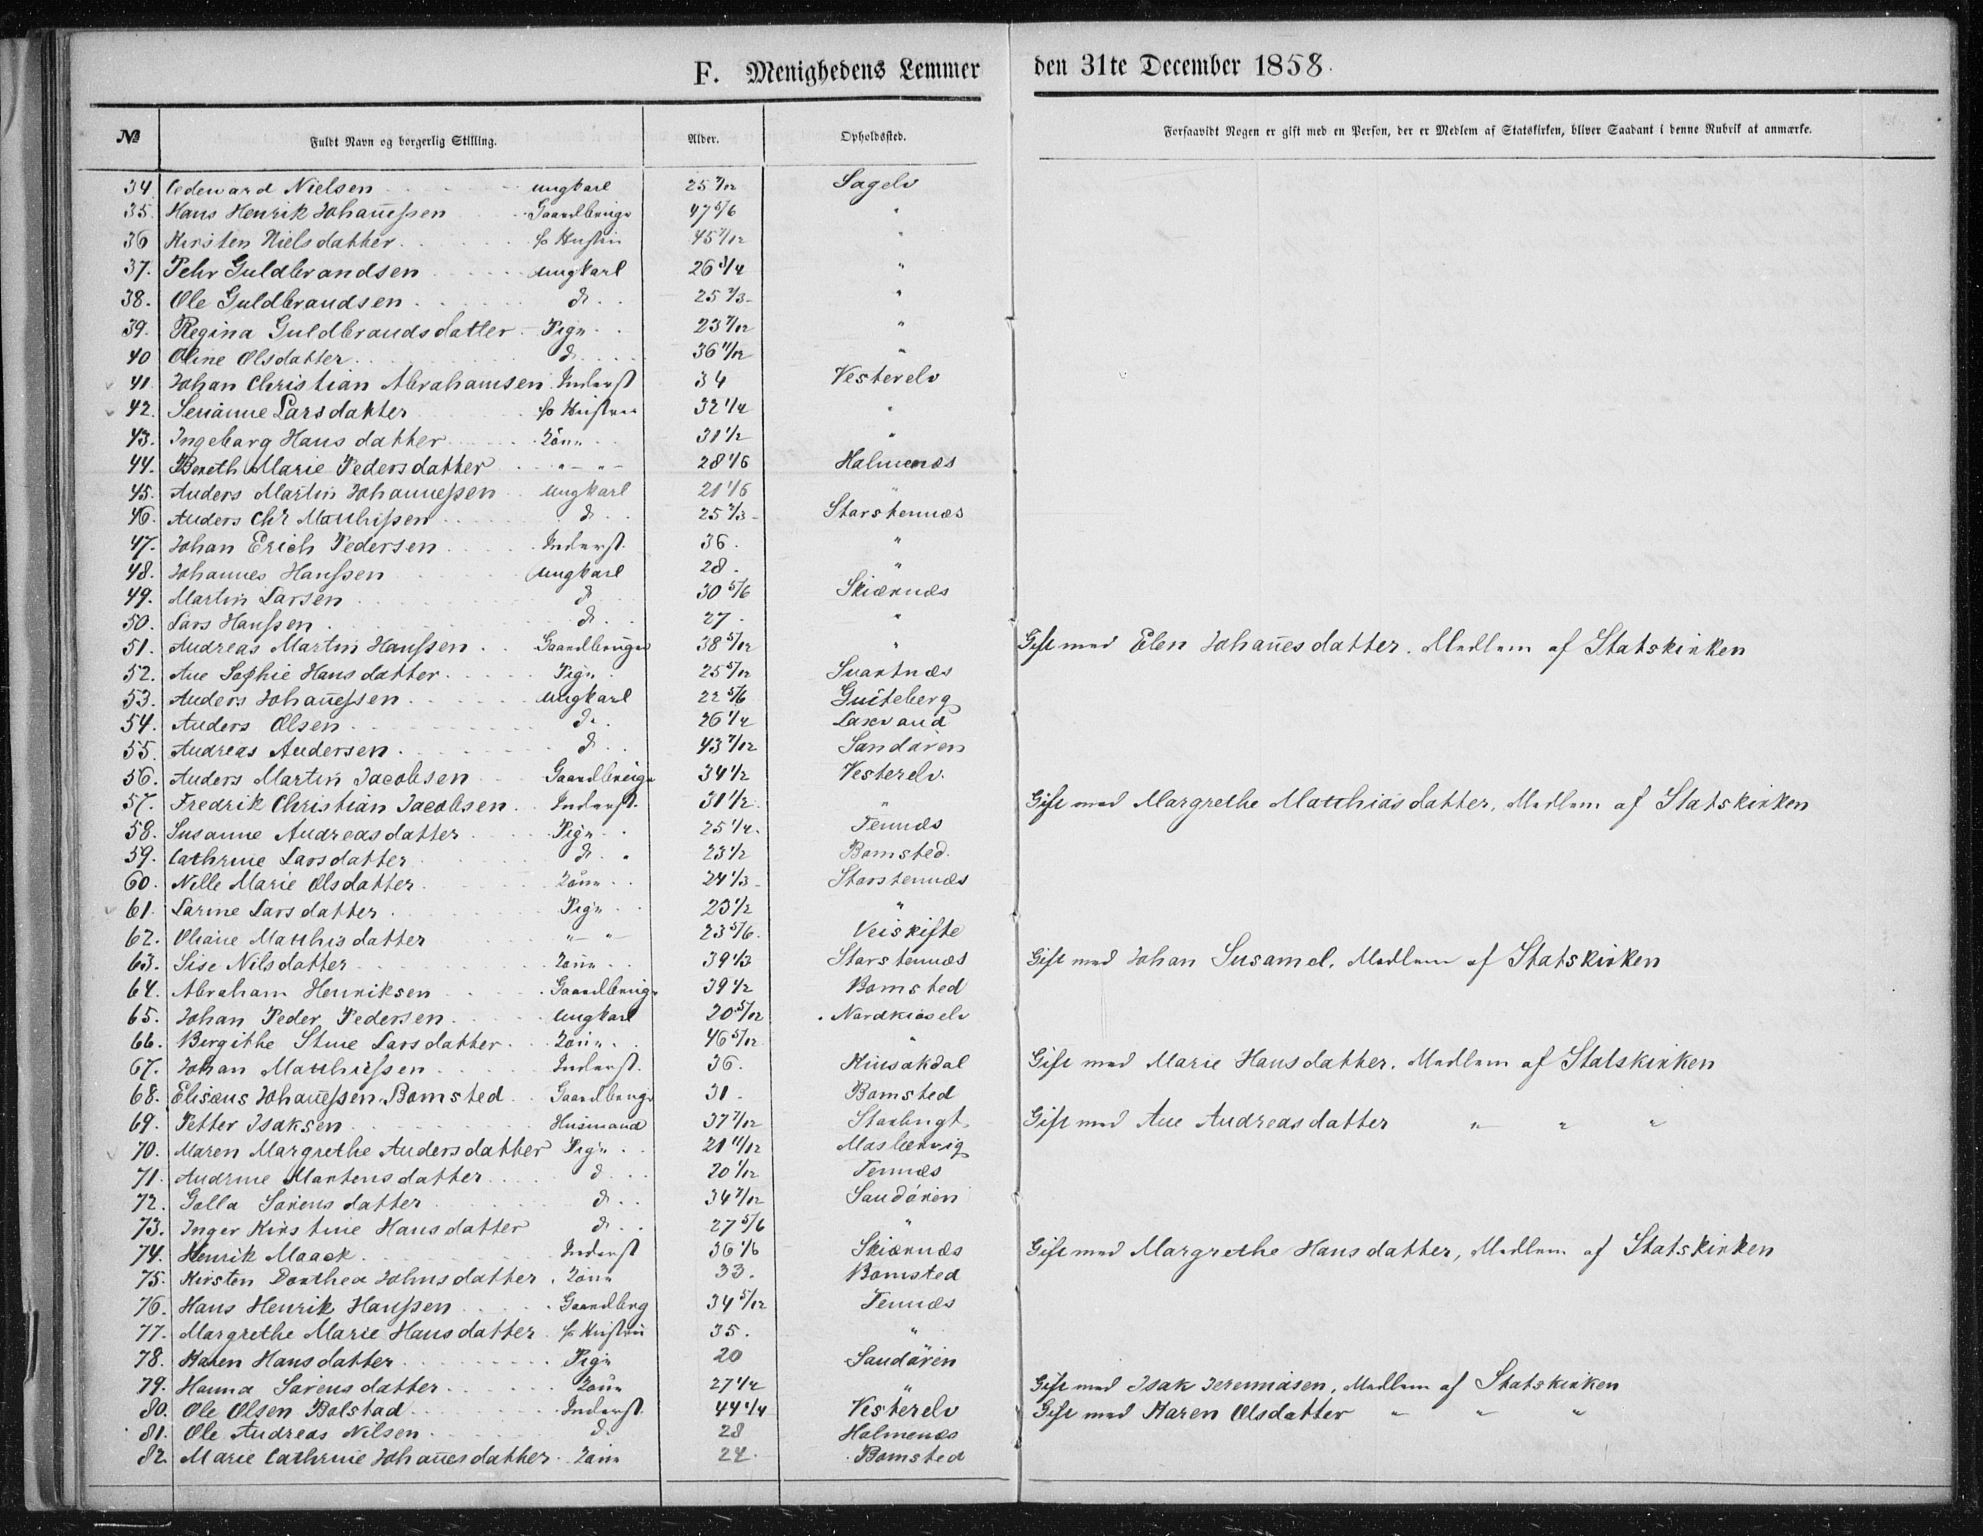 F. Menighedens Lemmer den 31te December 1858.
№ Fuldt Navn og borgerlig Stilling. Alder. Opholdssted. Forsaavidt Nogen er gift med en Person, der er Medlem af Statskirken, bliver Saadant i denne Rubrik at anmærke.
34 Edevard Nielsen ungkarl 25 7/12 Sagelv
35. Hans Henrik Johan̄eſsen Gaardbruger 47 5/6 "
36 Kirsten Nielsdatter. Hustru 45 7/12 "
37. Pehr Guldbrandsen ungkarl 26 3/4 "
38. Ole Guldbrandsen d. 25 2/3 "
39. Regina Guldbrandsdatter Pige 23 7/12 "
40 Oline Olsdatter d. 36 11/12 "
41. Johan Christian Abrahamsen Inderst 34 Vesterelv
42. Serianne Larsdatter Hustru 32 1/4 "
43. Ingebarg Hansdatter Kone 31 1/2 "
44. Bereth Marie Pedersdatter " " 28 1/6 Halmenæs
45. Anders Martin Johanneſsen ungkarl 21 1/6 "
46. Anders Chr Matthiſsen d. 25 2/3 Storstennæs
47. Johan Erich Pedersen Inderst. 36. "
48. Johannes Hanſsen ungkarl 28. "
49. Martin Larsen d. 30 5/6 Skiærnæs
50. Lars Hanſsen d. 27. "
51. Andreas Martin Hanſsen Gaardbruger 38 5/12 " Gift med Elen Johan̄esdatter. Medlem af Statskirken
52. Ane Sophie Hansdatter. Pige 25 5/12 Svartnæs
53. Anders Johan̄eſsen ungkarl 22 5/6 Guiteberg
54. Anders Olsen d. 26 1/4 Laxvand
55. Andreas Andersen d. 43 7/12 Sandøren
56. Anders Martin Jacobsen Gaardbruger 34 1/2 Vesterelv.
57. Fredrik Christian Jacobsen Inderst. 31 1/2 " Gift med Margrethe Matthiasdatter, Medlem af Statskirken
58. Susanne Andreasdatter Pige 25 1/4. Tennæs
59. Cathrine Larsdatter d. 23 1/2 Bomsted.
60. Nille Marie Olsdatter Kone 24 1/3 Storstennæs
61. Larine Larsdatter Pige 23 1/2 "
62. Oliane Matthisdatter " " 23 5/6. Veiskifte
63. Sise Nilsdatter Kone 39 1/3 Storstennæs Gift med Johan Susamel, Medlem af Statskirken
64. Abraham Henriksen Gaardbruger 39 1/2 Bomsted
65. Johan Peder Pedersen ungkarl 20 5/12 Nordkiøselv
66. Birgithe Stine Larsdatter Kone 46 5/12 "
67. Johan Matthiesſen Inderst. 36. Gift med Marie Hansdatter. Medlem af Statskirken
68. Elisæus Johan̄eſsen Bomsted Gaardbruger 31. Bomsted
69. Petter Isaksen Husmand 37 7/12 Gift med Ane Andreasdatter " " "
70. Maren Margrethe Andersdatter Pige 21 11/12
71. Andrine Martensdatter d. 20 1/12 Tennæs
72. Golla Sørensdatter d. 34 7/12 Sandøren
73. Inger Kirstine Hansdatter d. 27 5/6 "
74. Henrik Maack Inderst 36 1/6 Skiærnæs Gift med Margrethe Hansdatter, Medlem af Statskirken
75. Kirsten Dorthea Johnsdatter Kone 33. Bomsted
76. Hans Henrik Hanſsen Gaardbrug 34 5/12 Tennæs
77. Margrethe Marie Hansdatter Hustru 35. "
78. Karen Hansdatter Pige 20 Sandøren
79. Hanna Sørensdatter Kone 27 1/2 " Gift med Isak Jeremiasen, Medlem af Statskirken
80. Ole Olsen Bolstad Inderst. 44 1/4 Vesterelv Gift med Karen Olsdatter " " "
81. Ole Andreas Nilsen d. 28 Halmenæs
82. Marie Cathrine Johan̄esdatter Kone 24. Bomsted